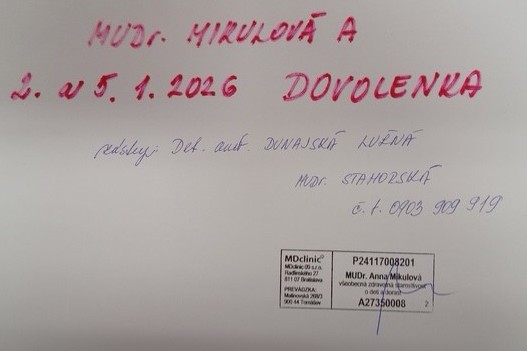 MUDr. MIKULOVÁ A
2. a 5. 1. 2026 DOVOLENKA
Det. amb. DUNAJSKÁ LUŽNÁ
MUDr. STAHORSKÁ
č. t. 0903 909 919
MDclinic®
MDclinic 09 s.r.o.
Radlinského 27
811 07 Bratislava
PREVÁDZKA:
Malinovská 268/3
900 44 Tomášov
P24117008201
MUDr. Anna Mikulová
všeobecná zdravotná starostlivosť
o deti a dorast
A27350008 2